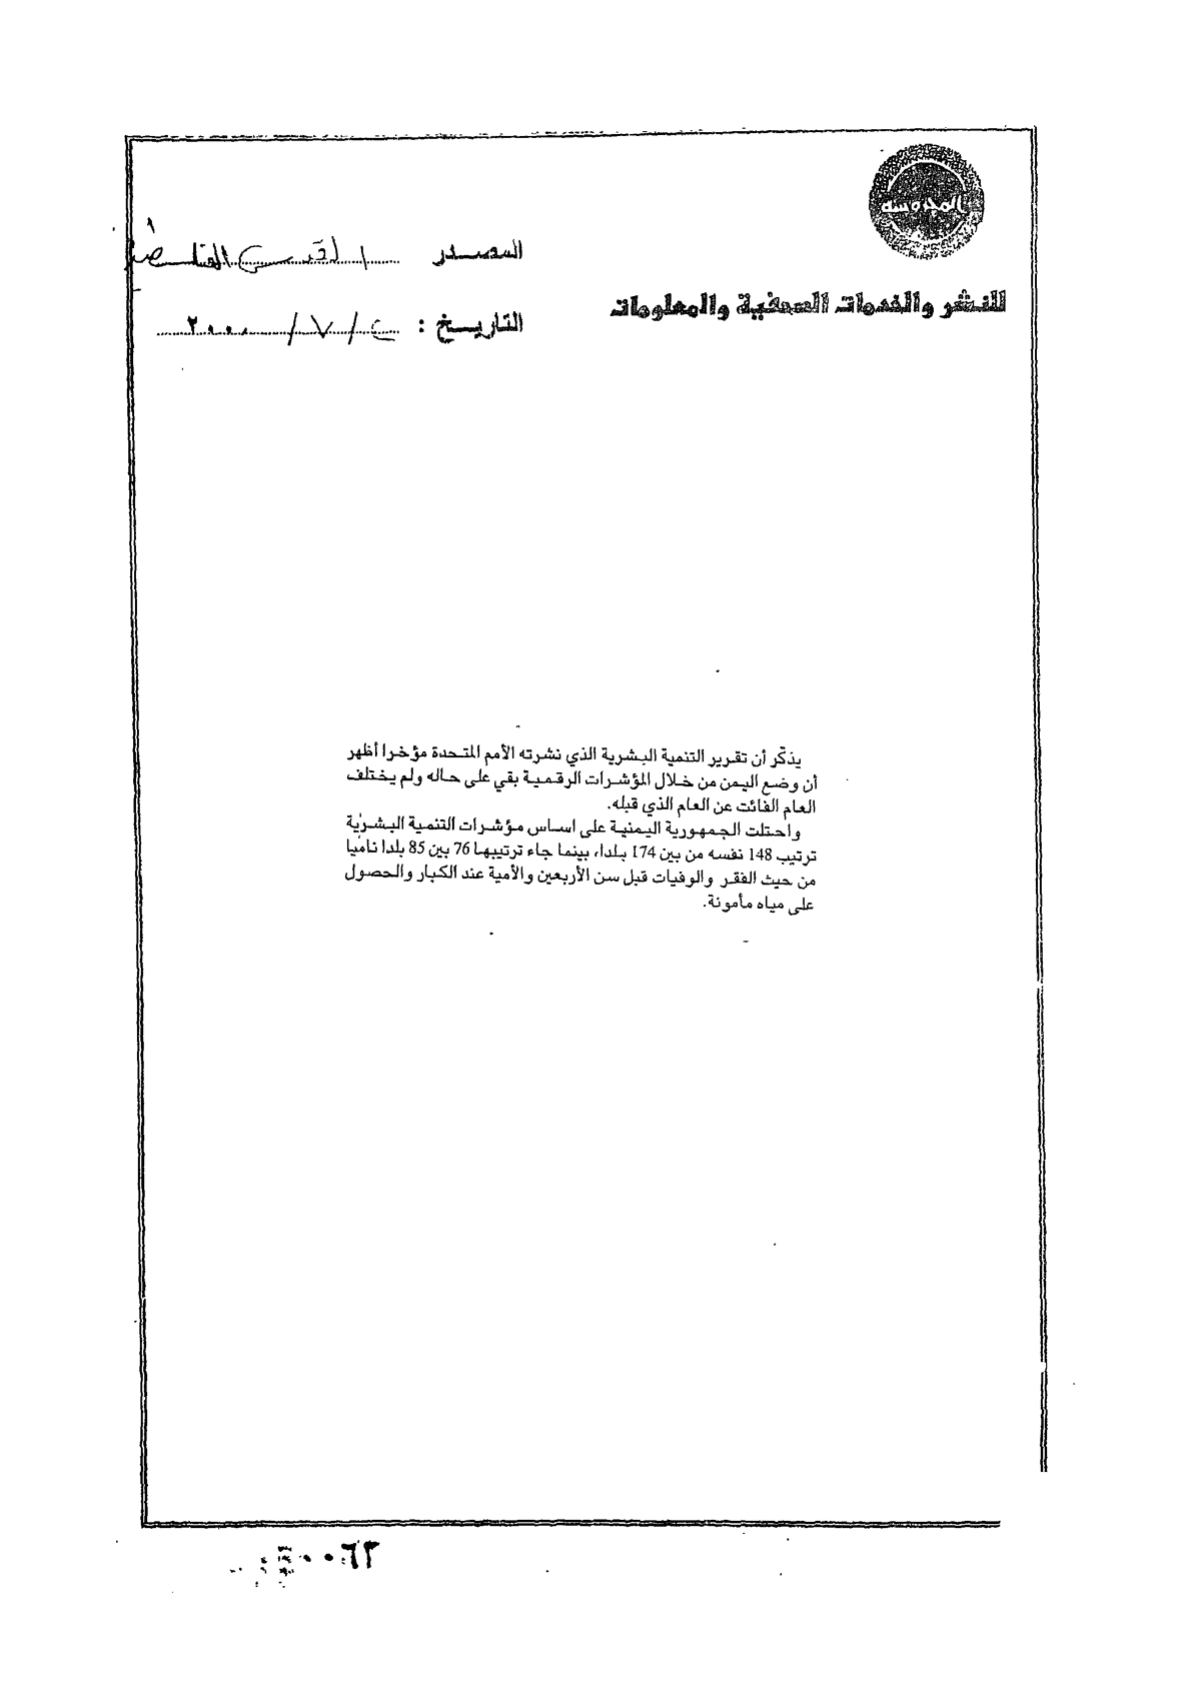 المحروسة
للنشر والخدمات الصحفية والمعلومات
المصدر القدس الفلسطينية
التاريخ : ٤ / ٧ / ٢٠٠٠
يذكّر أن تقرير التنمية البشرية الذي نشرته الأمم المتحدة مؤخرا أظهر
أن وضع اليمن من خلال المؤشرات الرقمية بقي على حاله ولم يختلف
العام الفائت عن العام الذي قبله.
واحتلت الجمهورية اليمنية على اساس مؤشرات التنمية البشرية
ترتيب 148 نفسه من بين 174 بلدا، بينما جاء ترتيبها 76 بين 85 بلدا ناميا
من حيث الفقر والوفيات قبل سن الأربعين والأمية عند الكبار والحصول
على مياه مأمونة.